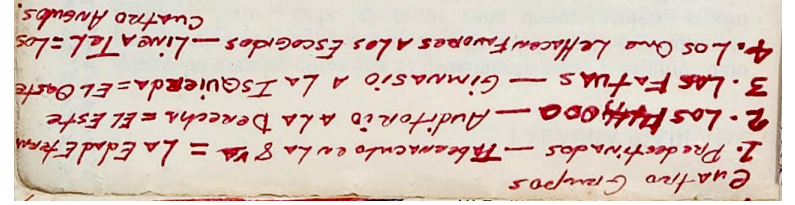 Cuatro Grupos
1. Predestinados — Tabernaculo en La 8 = La Edad Etern
2. Los 144,000 — Auditorio a la Derecha = El Este
3. Las Fatuas — Gimnasio a La Isquierda = El Oeste
4. Los Que Le Hacen Favores A Los Escogidos — Linea Tel = Los
Cuatro Angulos.